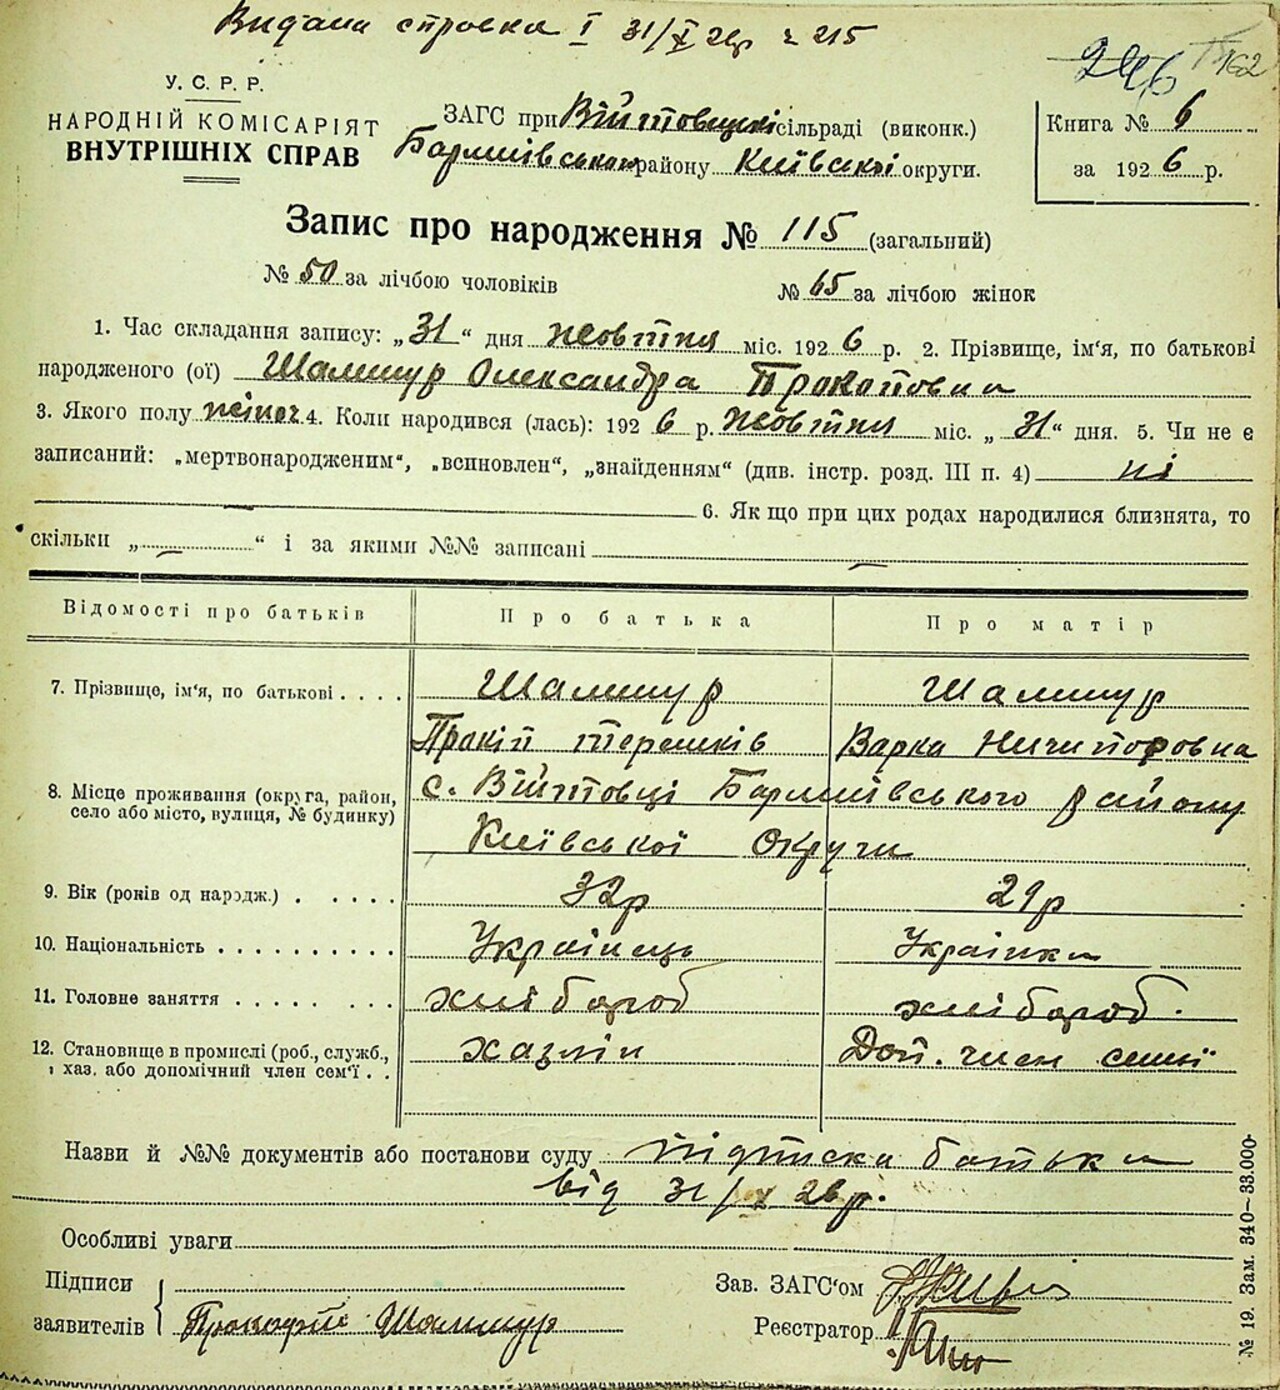 Видана справка I 31/X 26р ч 215
246 162
У. С. Р. Р.
НАРОДНІЙ КОМІСАРІЯТ
ВНУТРІШНІХ СПРАВ
ЗАГС при Війтовецькі сільраді (виконк.)
Баришівського району Київської округи.
Книга № 6
за 1926 р.
Запис про народження № 115 (загальний)
№ 50 за лічбою чоловіків № 65 за лічбою жінок
1. Час складання запису: „31“ дня жовтня міс. 1926 р. 2. Прізвище, ім‘я, по батькові
народженого (ої) Шамшур Олександра Прокоповна
3. Якого полу жіноч 4. Коли народився (лась): 1926 р. жовтня міс. „31“ дня. 5. Чи не є
записаний: „мертвонародженим“, „всиновлен“, „знайденням“ (див. інстр. розд. III п. 4) ні
6. Як що при цих родах народилися близнята, то
скільки „ — “ і за якими №№ записані —
Відомості про батьків Про батька Про матір
7. Прізвище, ім‘я, по батькові . . . . Шамшур Шамшур
Пракіп Терешків Варка Ничипоровна
8. Місце проживання (округа, район, с. Війтовці Баришівського району
село або місто, вулиця, № будинку) Київської Округи
9. Вік (років од народж.) . . . . . 32р 29р
10. Національність . . . . . . . . . . Українець Українка
11. Головне заняття . . . . . . . . хлібороб хлібороб.
12. Становище в промислі (роб., служб., хазяін Доп. член семьї
хаз. або допомічний член сем‘ї . .
Назви й №№ документів або постанови суду підписка батька
від 31/X 26р.
Особливі уваги
Підписи
заявителів Прокофій Шамшур
Зав. ЗАГС‘ом
Реєстратор
№ 19. Зам. 340—33.000-